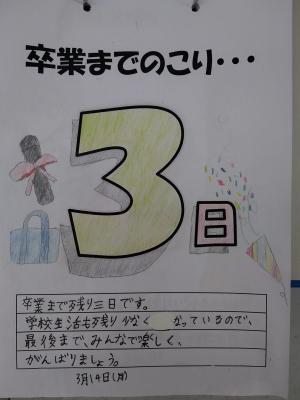 卒業までのこり・・・
3日
卒業まで残り三日です。
学校生活も残り少なくなっているので、
最後まで、みんなで楽しく、
がんばりましょう。
3月14日(月)